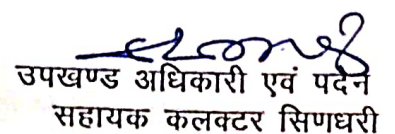 उपखण्ड अधिकारी एवं पदेन
सहायक कलक्टर सिणधरी